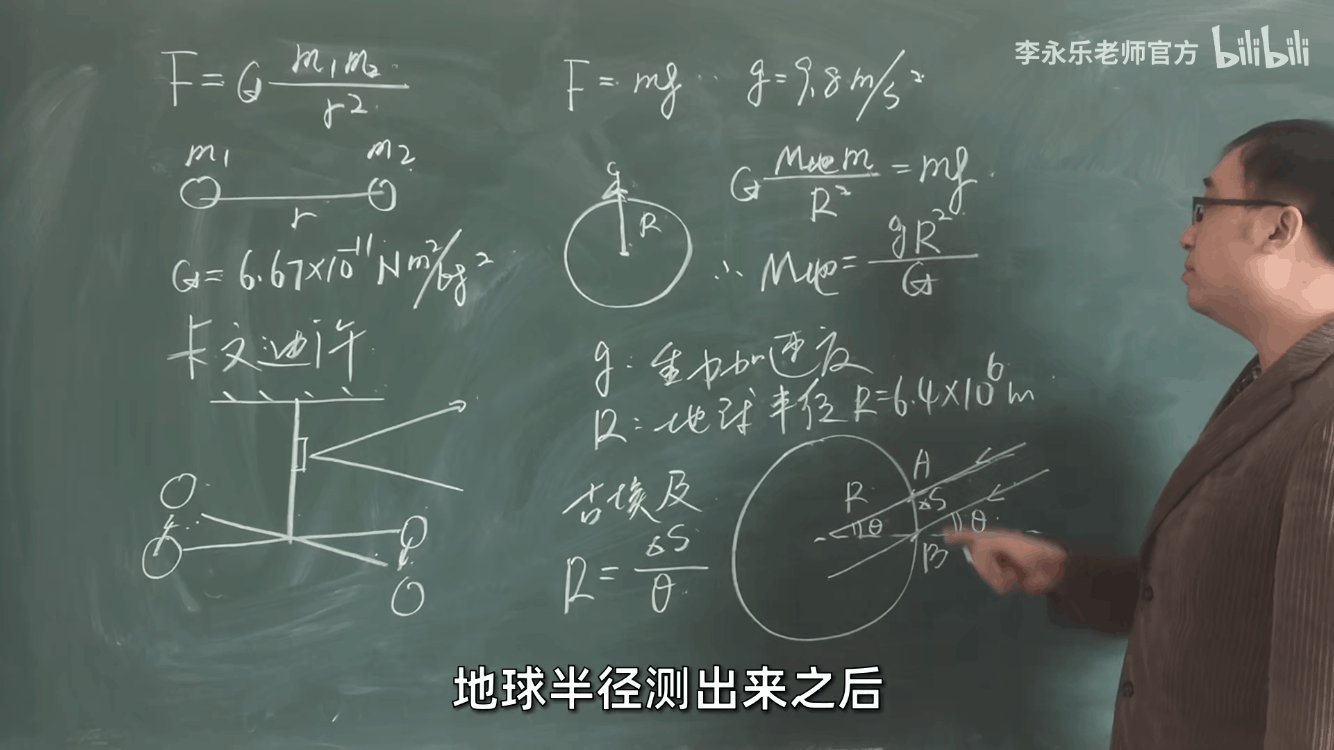 李永乐老师官方 bilibili
F = G m₁m₂ / r²
m₁ m₂
r
G = 6.67×10⁻¹¹ N m²/kg²
卡文迪许
F = mg g = 9.8 m/s²
R
G M地m / R² = mg
∴ M地 = gR² / G
g: 重力加速度
R: 地球半径 R=6.4×10⁶ m
古埃及
R = △S / θ
A
R θ △S θ
B
地球半径测出来之后